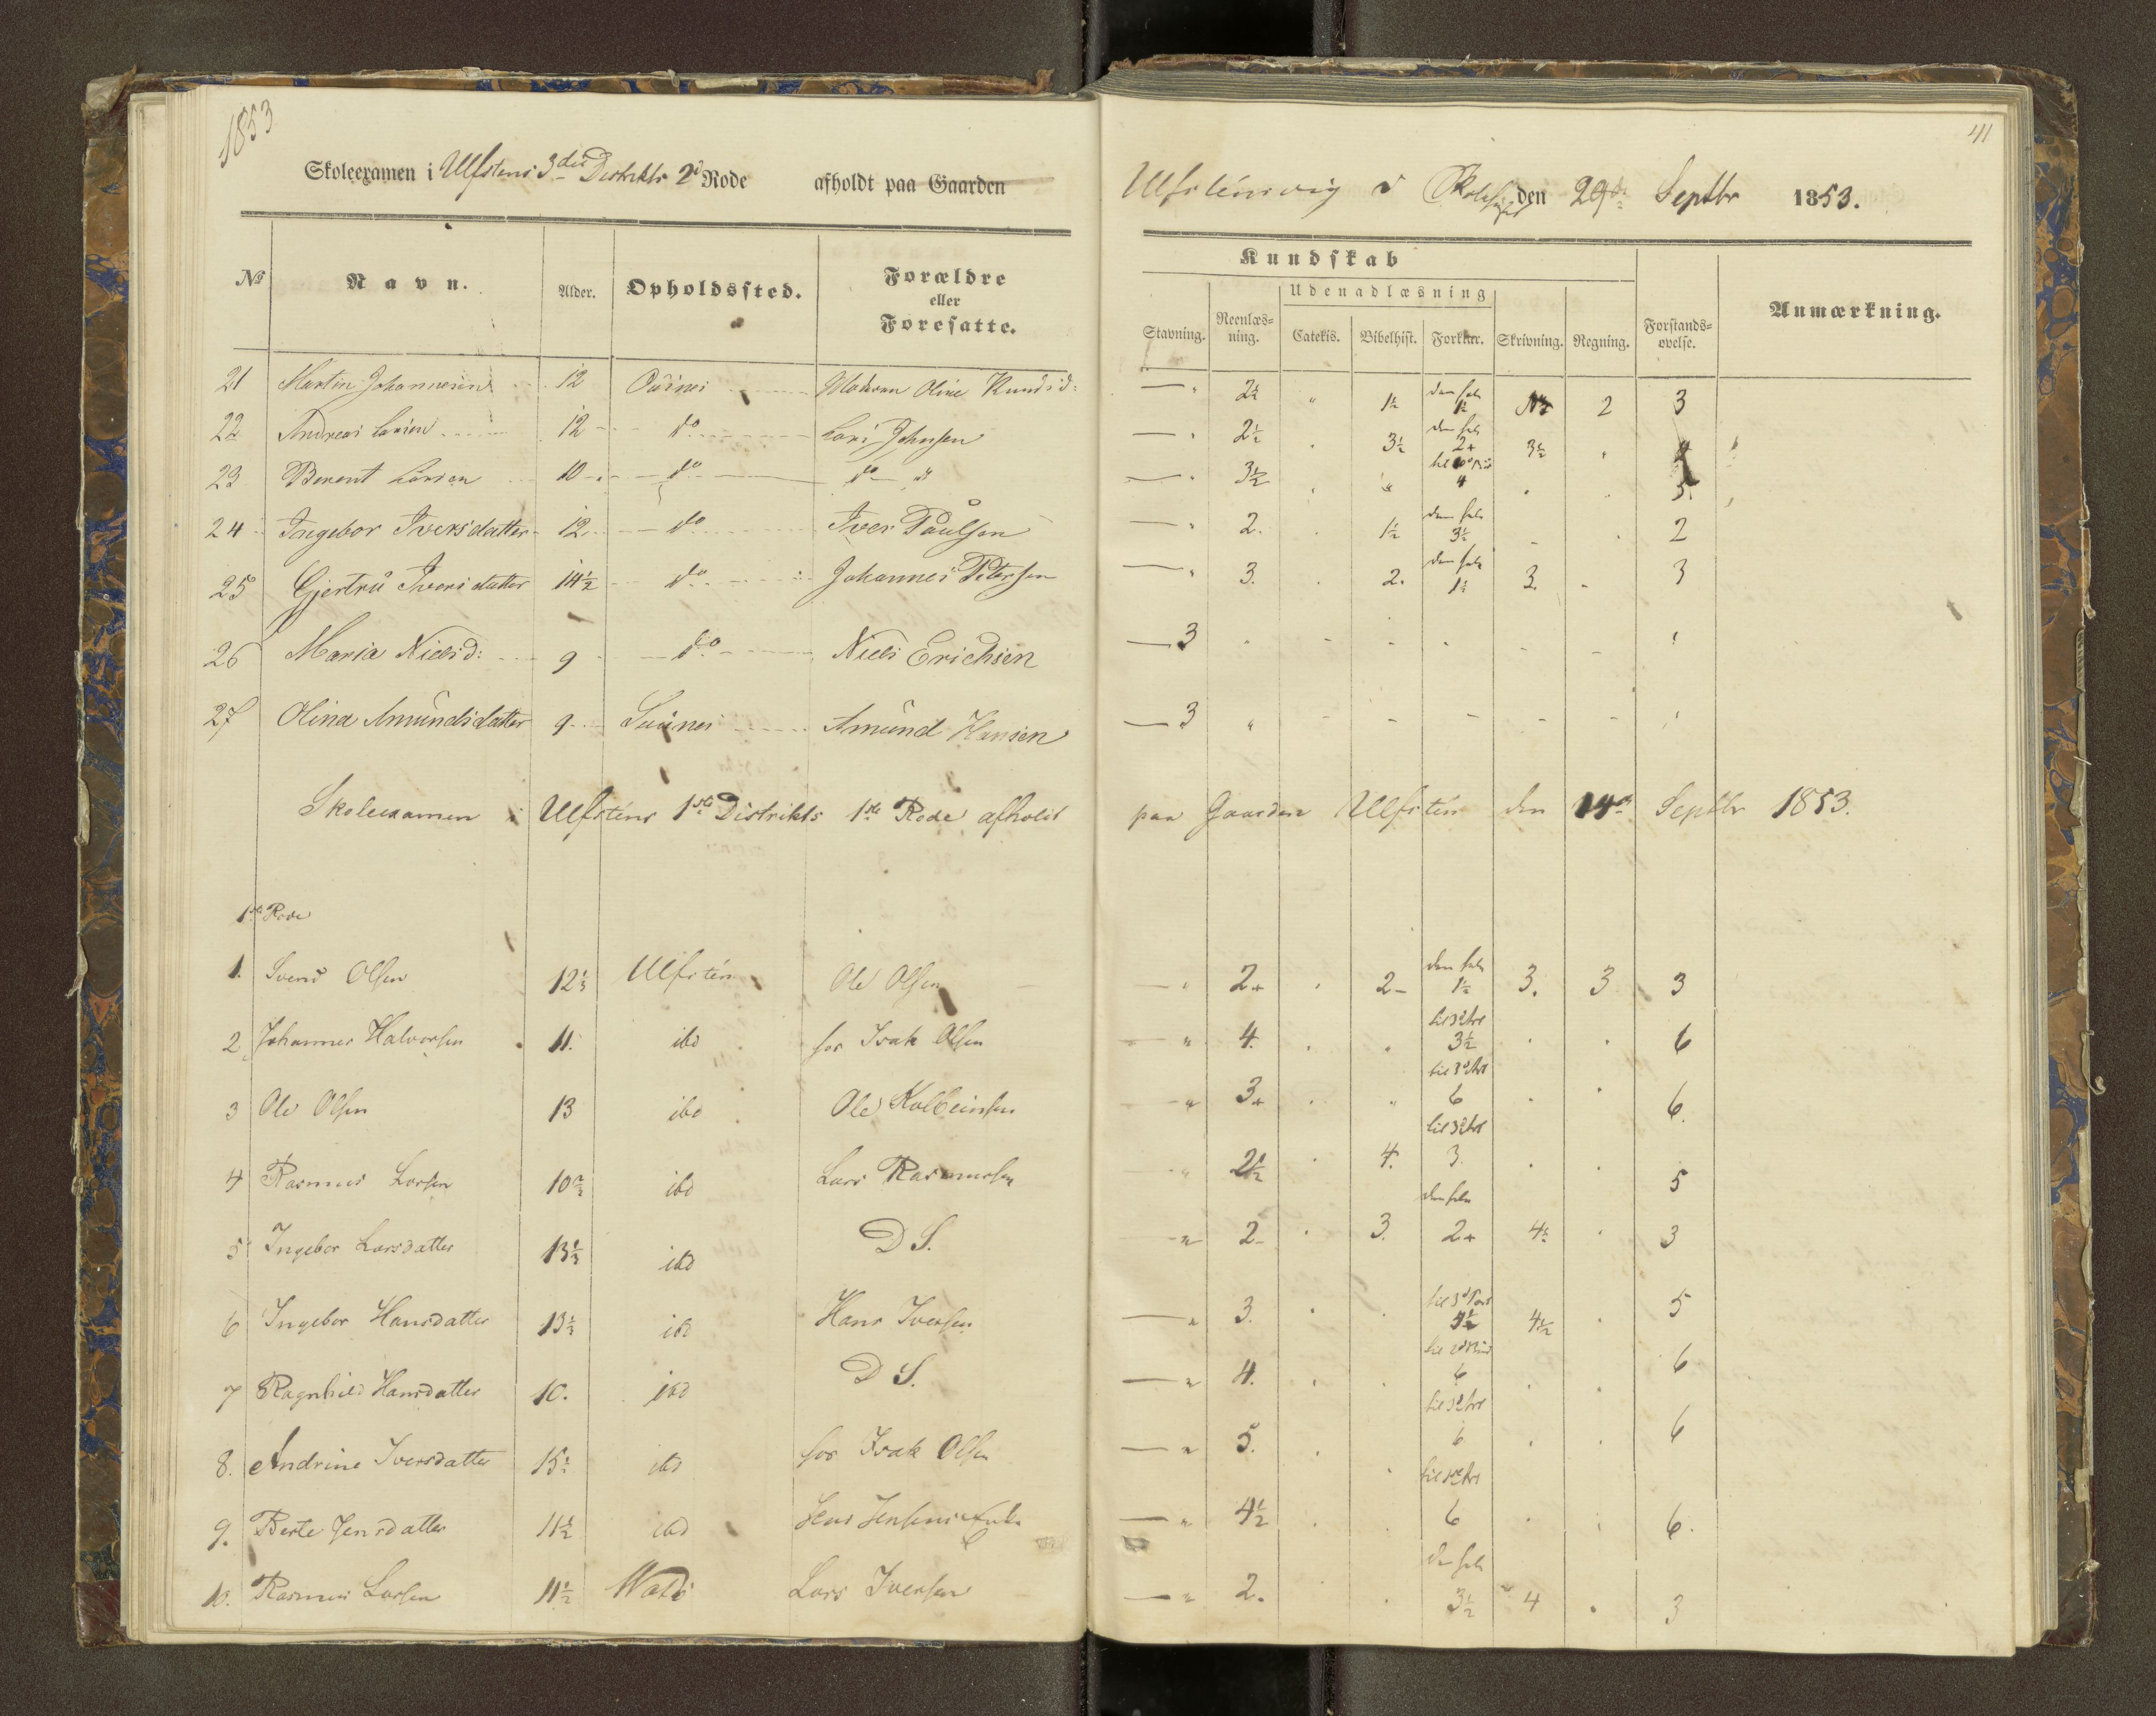 1853
41
Skoleexamen i Ulfstens 3die Distrikts 2d Rode afholdt paa Gaarden Ulfstensvig den 29de Septbr 1853.
Kundskab
Udenadlæsning
No Navn. Alder. Opholdssted. Forældre eller Foresatte. Stavning. Reenlæsning. Catekis. Bibelhist. Forklar. Skrivning. Regning. Forstandsøvelse. Anmærkning.
21 Martin Johannesen 12 Moderen Oline Knudsd: — " 2½ " 1½ den hele 1½ 2 3
22 Andreas Larsen 12 do Lars Johnsen — " 2½ 3½ den hele 2+ 3½
23 Berent Larsen 10 do do — " 3½ " 4
24 Ingebor Iversdatter 12 do Iver Paulsen — " 2. 1½ den hele 3½ 2
25 Gjertru Iversdatter 14½ do Johannes Petersen — " 3. 2. den hele 1½ 3. 3
26 Maria Nielsd: 9 do Niels Erichsen — 3
27 Olina Amundsdatter 9 Amund Hansen — 3 "
Skoleexamen i Ulfstens 1ste Distrikts 1ste Rode afholdt paa Gaarden Ulfsten den 14de Septbr 1853.
1ste Rode
1. Svend Olsen 12⅓ Ulfsten Ole Olsen 2+ 2- den hele 1½ 3. 3 3
2 Johannes Halvorsen 11. ibd for Isak Olsen — " 4. til 3d Art 3½ 6
3 Ole Olsen 13 ibd Ole Kolbeinsen — " 3+ til 3d Art 6 6.
4 Rasmus Larsen 10⅔ ibd Lars Rasmussen — " 2½ 4. til 3d Art 3. 5
5 Ingebor Larsdatter 13⅓ ibd D S. — " 2- 3. den hele 2+ 4½ 3
6 Ingebor Hansdatter 13⅓ ibd Hans Iversen — " 3. 4½ 5
7 Ragnhild Hansdatter 10. ibd D S. — " 4. 6 6
8. Andrine Iversdatter 15½ ibd for Isak Olsen — " 5. til 3d Art 6 6
9. Berte Jensdatter 11½ ibd Jens Jensens Enke — " 4½ 6 6.
10. Rasmus Larsen 11½ Lars Iversen — " 2. den hele 3½ 4 3